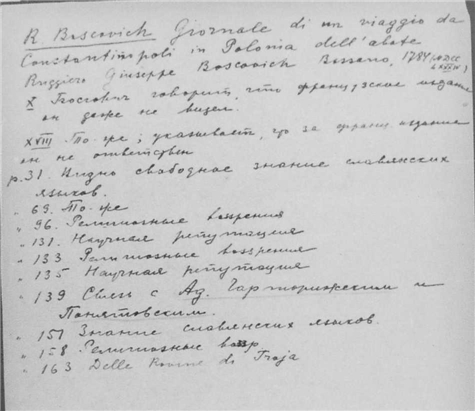 R. Boscovich Giornale di un viaggio da
Constantinopoli in Polonia dell'abate
Ruggiero Giuseppe Boscovich Bassano, 1784
X Боскович говорит что французское издание
он даже не видел.
XVIII То-же; указывает, что за франц. издание
он не ответствен
p. 31. Видно свободное знание славянских
языков.
" 69. То-же
" 96. Религиозные воззрения
" 131. Научная репутация
" 133 Религиозные воззрения
" 135 Научная репутация
" 139 Связь с Ад. Чарторижским и
Понятовским.
" 151 Знание славянских языков.
" 158 Религиозные возр
" 163 Delle Rovine di Troja